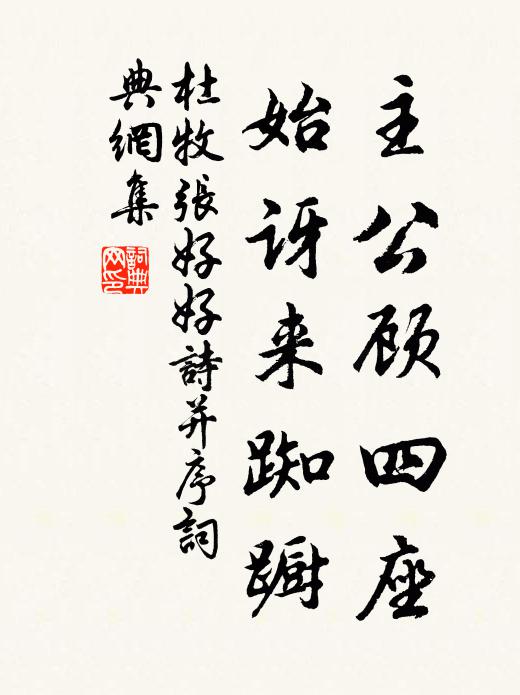 主公顾四座
始讶来踟蹰
杜牧張好好詩并序詞
典網集
詞典
网印